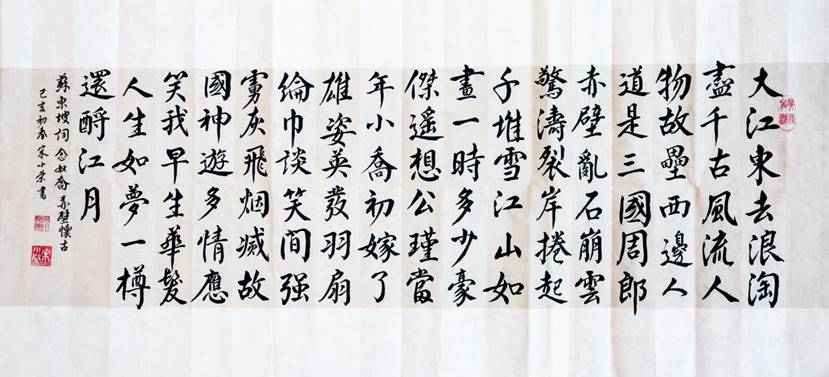 大江東去浪淘
盡千古風流人
物故壘西邊人
道是三國周郎
赤壁亂石崩雲
驚濤裂岸捲起
千堆雪江山如
畫一時多少豪
傑遥想公瑾當
年小喬初嫁了
雄姿英發羽扇
綸巾談笑間强
虜灰飛烟滅故
國神遊多情應
笑我早生華髮
人生如夢一樽
還酹江月
蘇東坡詞 念奴喬 赤壁懷古
己亥初春 宋小荣書